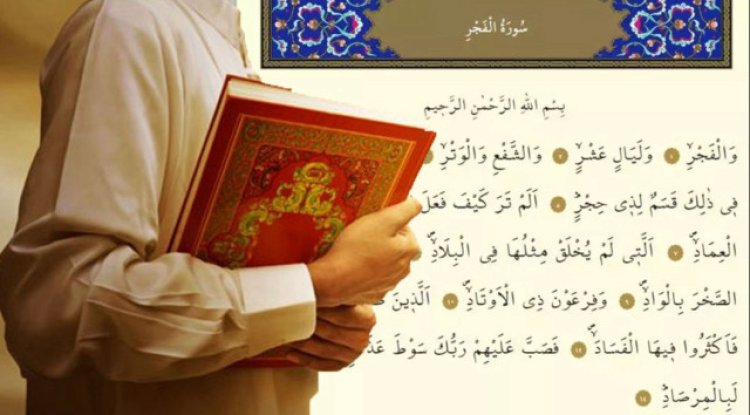 سُورَةُ الْفَجْرِ
بِسْمِ اللهِ الرَّحْمٰنِ الرَّح۪يمِ
وَالْفَجْرِۙ ﴿١﴾ وَلَيَالٍ عَشْرٍۙ ﴿٢﴾ وَالشَّفْعِ وَالْوَتْرِۙ
ف۪ي ذٰلِكَ قَسَمٌ لِذ۪ي حِجْرٍۜ ﴿٥﴾ اَلَمْ تَرَ كَيْفَ فَعَلَ
الْعِمَادِۙ ﴿٧﴾ اَلَّت۪ي لَمْ يُخْلَقْ مِثْلُهَا فِي الْبِلَادِۙ
الصَّخْرَ بِالْوَادِۙ ﴿٩﴾ وَفِرْعَوْنَ ذِي الْاَوْتَادِۙ ﴿١٠﴾ اَلَّذ۪ينَ
فَاَكْثَرُوا ف۪يهَا الْفَسَادَۙ ﴿١٢﴾ فَصَبَّ عَلَيْهِمْ رَبُّكَ سَوْطَ
لَبِالْمِرْصَادِۜ ﴿١٤﴾